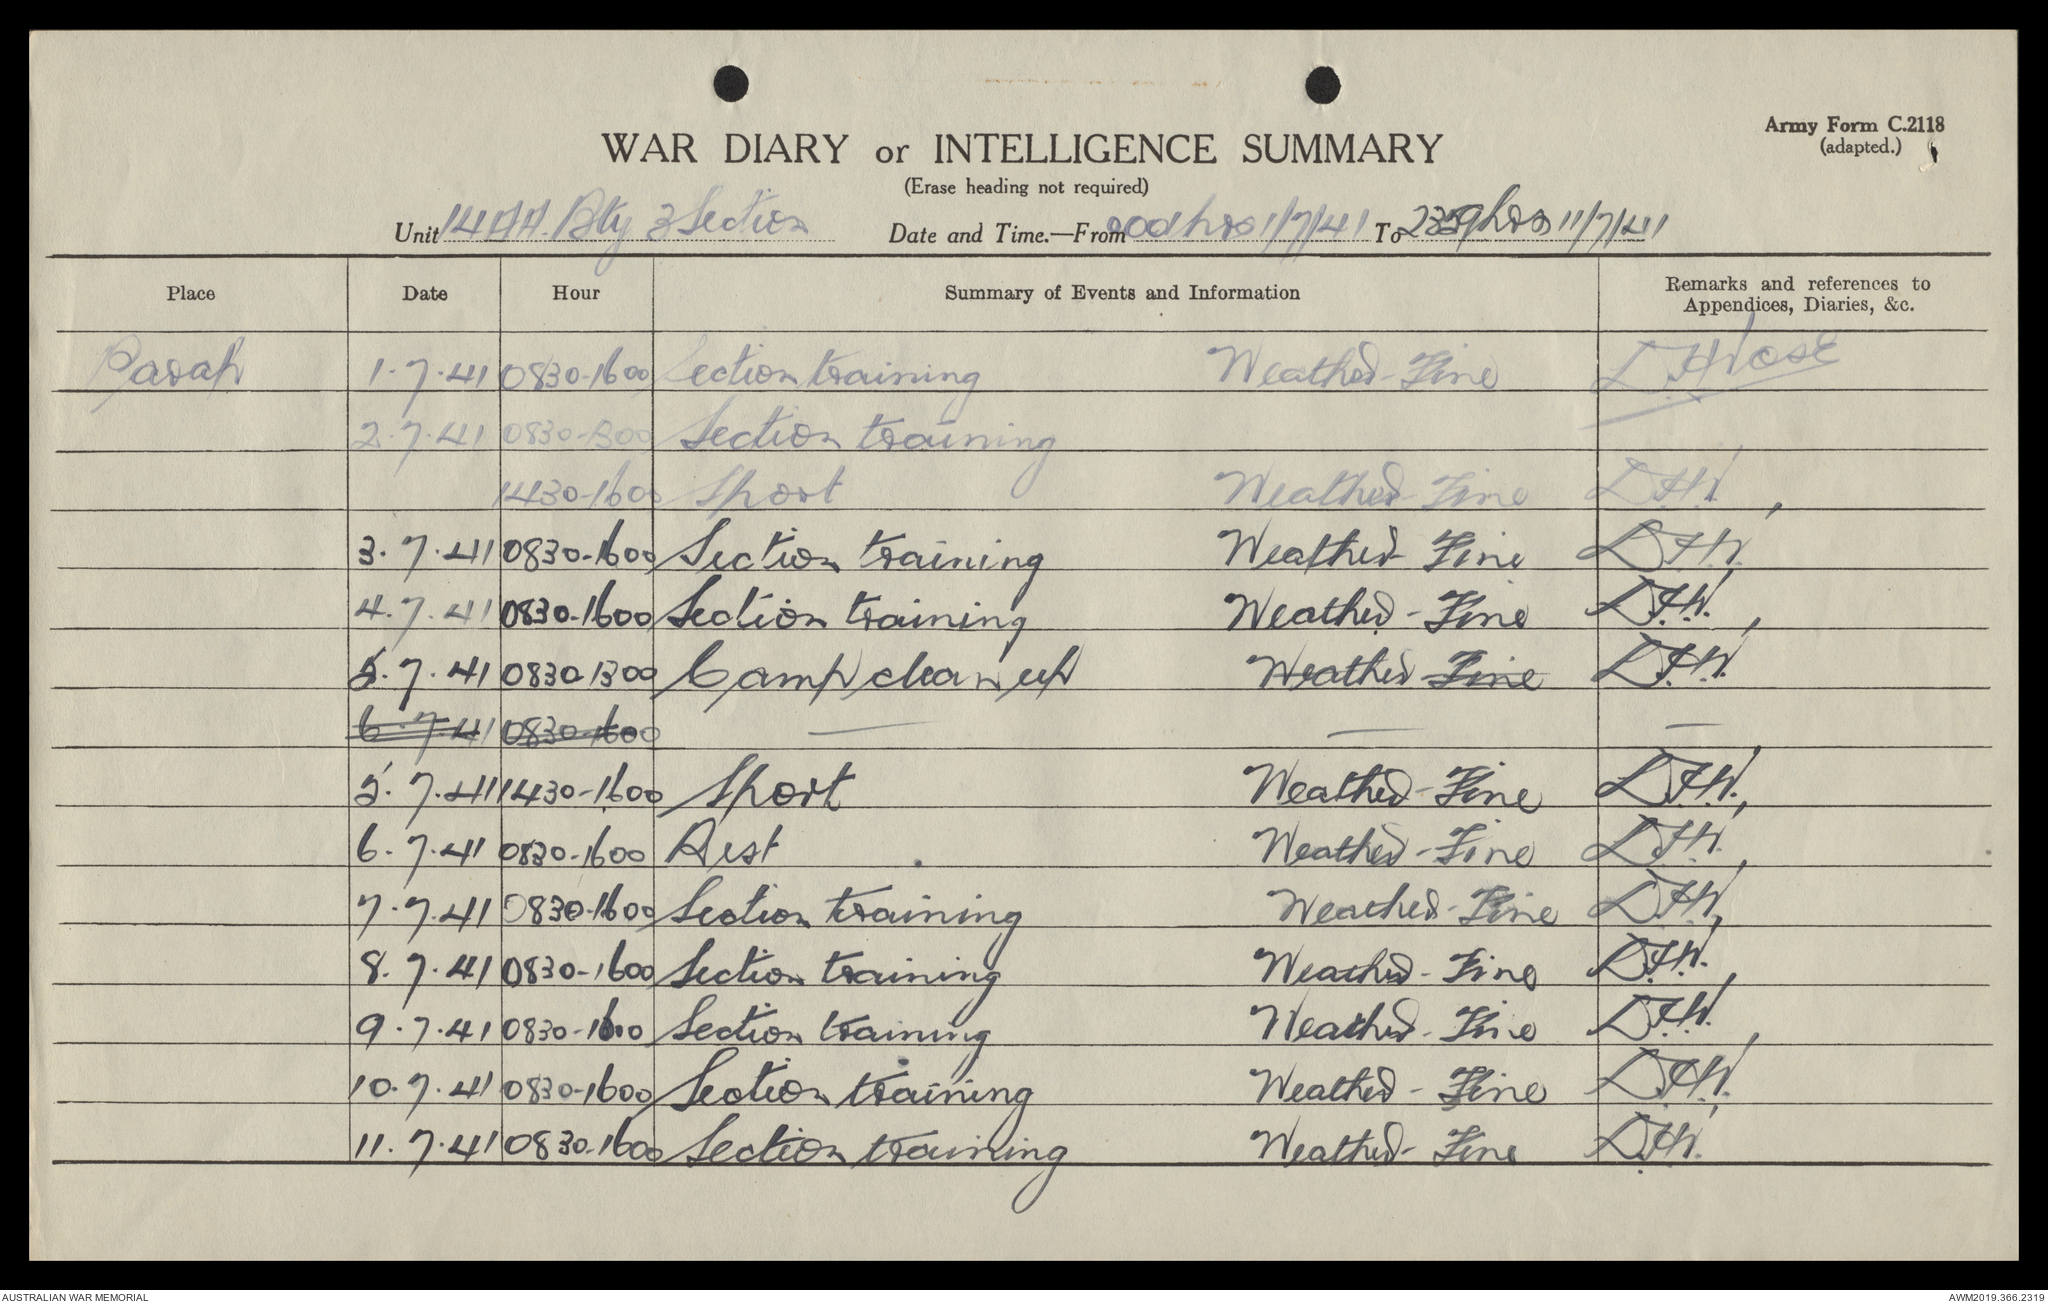 WAR DIARY or INTELLIGENCE SUMMARY
Army Form C.2118
(adapted.)
(Erase heading not required)
Unit 14 AA. Bty 3 Section Date and Time.—From 0001hrs 1/7/41 To 2359hrs 11/7/41
Place Date Hour Summary of Events and Information Remarks and references to
Appendices, Diaries, &c.
Parap 1.7.41 0830-1600 Section training Weather-Fine
2.7.41 0830-1300 Section training
1430-1600 Sport Weather-Fine D.F.W.
3.7.41 0830-1600 Section training Weather-Fine D.F.W.
4.7.41 0830-1600 Section training Weather-Fine D.F.W.
5.7.41 0830-1300 Camp clean up Weather-Fine D.F.W.
6.7.41 0830-1600 — — —
5.7.41 1430-1600 Sport Weather-Fine D.F.W.
6.7.41 0830-1600 Rest Weather-Fine D.F.W.
7.7.41 0830-1600 Section training Weather-Fine D.F.W.
8.7.41 0830-1600 Section training Weather-Fine D.F.W.
9.7.41 0830-1600 Section training Weather-Fine D.F.W.
10.7.41 0830-1600 Section training Weather-Fine D.F.W.
11.7.41 0830-1600 Section training Weather-Fine D.F.W.
AUSTRALIAN WAR MEMORIAL
AWM2019.366.2319